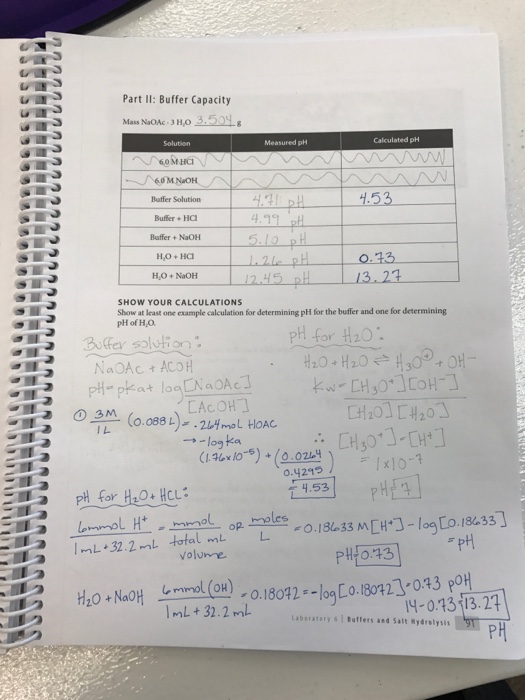 Part II: Buffer Capacity
Mass NaOAc · 3 H₂O 3.504 g
Solution Measured pH Calculated pH
6.0 M HCl
6.0 M NaOH
Buffer Solution 4.71 pH 4.53
Buffer + HCl 4.99 pH
Buffer + NaOH 5.10 pH
H₂O + HCl 1.26 pH 0.73
H₂O + NaOH 12.45 pH 13.27
SHOW YOUR CALCULATIONS
Show at least one example calculation for determining pH for the buffer and one for determining
pH of H₂O.
Buffer solution:
NaOAc + ACOH
pH = pKa + log [NaOAc]
[ACOH]
① 3M (0.088 L) = .264 mol HOAC
1L
→ -log Ka
(1.76x10⁻⁵) + (0.0264)
0.4295
= 4.53
pH for H₂O:
H₂O + H₂O ⇌ H₃O⊕ + OH-
Kw = [H₃O⁺][OH⁻]
[H₂O][H₂O]
∴ [H₃O⁺] = [H⁺]
= 1x10⁻⁷
pH = 7
pH for H₂O + HCL:
6 mmol H⁺ = mmol OR moles = 0.18633 M [H⁺] - log [0.18633]
1 mL + 32.2 mL total mL L = pH
volume
pH = 0.73
H₂O + NaOH 6 mmol (OH) = 0.18072 = -log [0.18072] = 0.73 pOH
1 mL + 32.2 mL 14 - 0.73 = 13.27
PH
Laboratory 6 | Buffers and Salt Hydrolysis 91